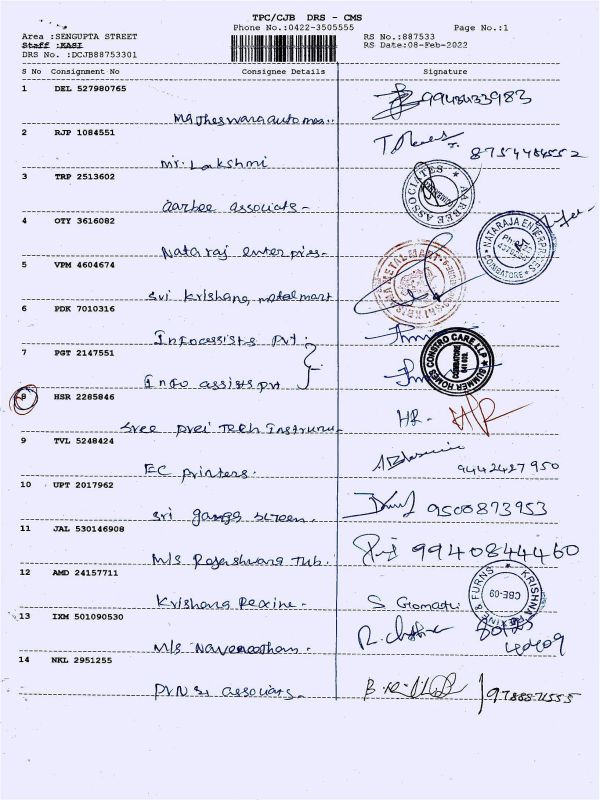 TPC/CJB DRS - CMS
Phone No.:0422-3505555
Page No.:1
Area :SENGUPTA STREET
RS No.:887533
Staff :KASI
RS Date:08-Feb-2022
DRS No. :DCJB88753301
S No Consignment No Consignee Details Signature
1 DEL 527980765
Maheswara automos..
2 RJP 1084551
Mr. Lakshmi
8754484552
3 TRP 2513602
aarbee associats-
AARBEE ASSOCIATES
4 OTY 3616082
Nataraj enterpires-
NATARAJA ENTERPRISES COIMBATORE
5 VPM 4604674
Sri Krishana metal mart
6 PDK 7010316
Infoassists Pvt.
7 PGT 2147551
Info assists pvt
SUMMER HOMES CONSTRO CARE LLP
COIMBATORE
8 HSR 2285846
Sree Tech
HR- HR
9 TVL 5248424
EC printers.
9442427950
10 UPT 2017962
Sri ganga screen.
9500873953
11 JAL 530146908
M/s Rajeshwara Tub.
9940844460
12 AMD 24157711
Krishana Rexine.
S Gomathi
KRISHNA REXINE & FURNS
CBE-09
13 IXM 501090530
M/s
14 NKL 2951255
PVNSI associats
9788871555